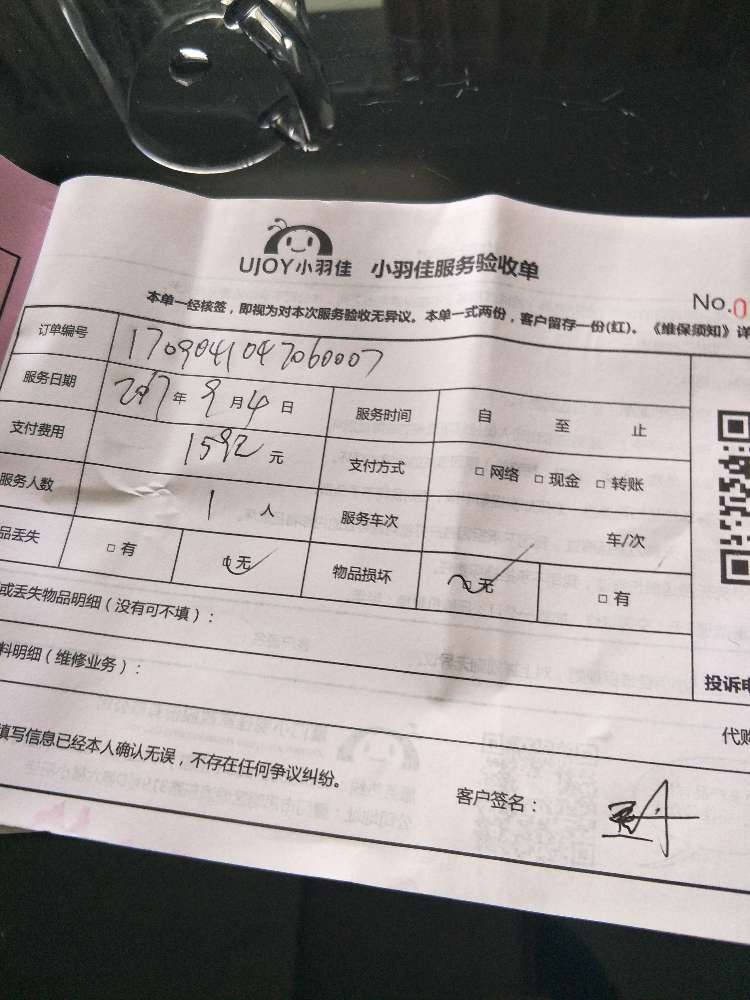 UJOY小羽佳 小羽佳服务验收单
No.0
本单一经核签，即视为对本次服务验收无异议。本单一式两份，客户留存一份(红)。《维保须知》详
订单编号 1709041047060007
服务日期 2017年9月4日 服务时间 自 至 止
支付费用 1592元 支付方式 □网络 □现金 □转账
服务人数 1人 服务车次 车/次
品丢失 □有 □无 物品损坏 □无 □有
或丢失物品明细（没有可不填）：
料明细（维修业务）：
投诉电
代购
填写信息已经本人确认无误，不存在任何争议纠纷。
客户签名：